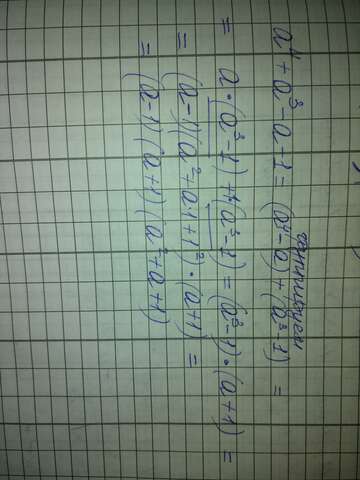 группируем
a⁴ + a³ - a - 1 = (a⁴ - a) + (a³ - 1) =
= a · (a³ - 1) + 1(a³ - 1) = (a³ - 1) · (a + 1) =
= (a - 1)(a² + a1 + 1²) · (a + 1) =
= (a - 1)(a + 1)(a² + a + 1)